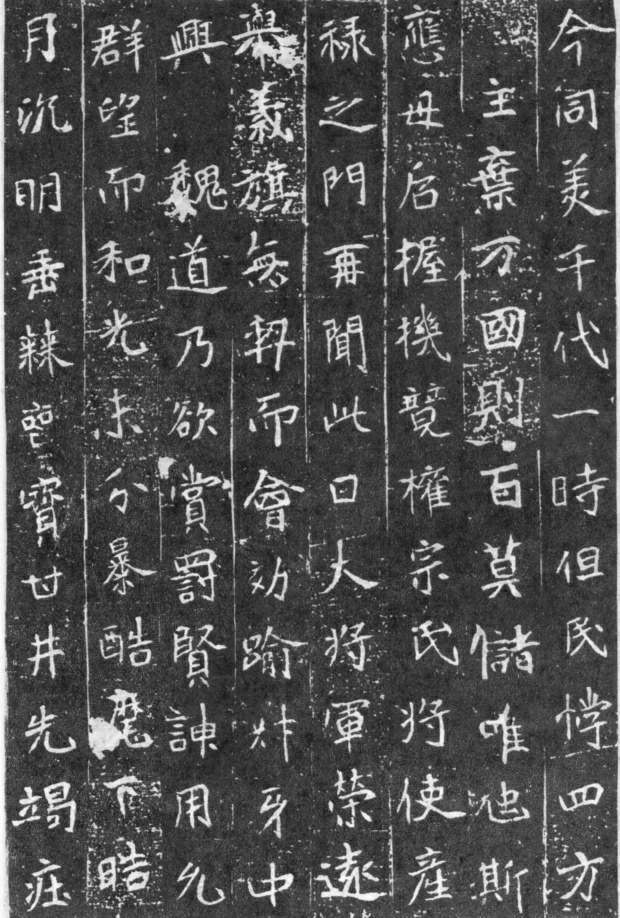 今同美千代一時但民惸四方
主棄万國則百莫儲唯虵斯
應母后握機競権宗氏将使産
禄之門再聞此日大将軍榮遠
舉義旗無契而會効踰叶牙中
興魏道乃欲賞罰賢諌用允
群望而和光未分暴酷麾下晧
月沉明垂棘喪寳甘井先竭疰